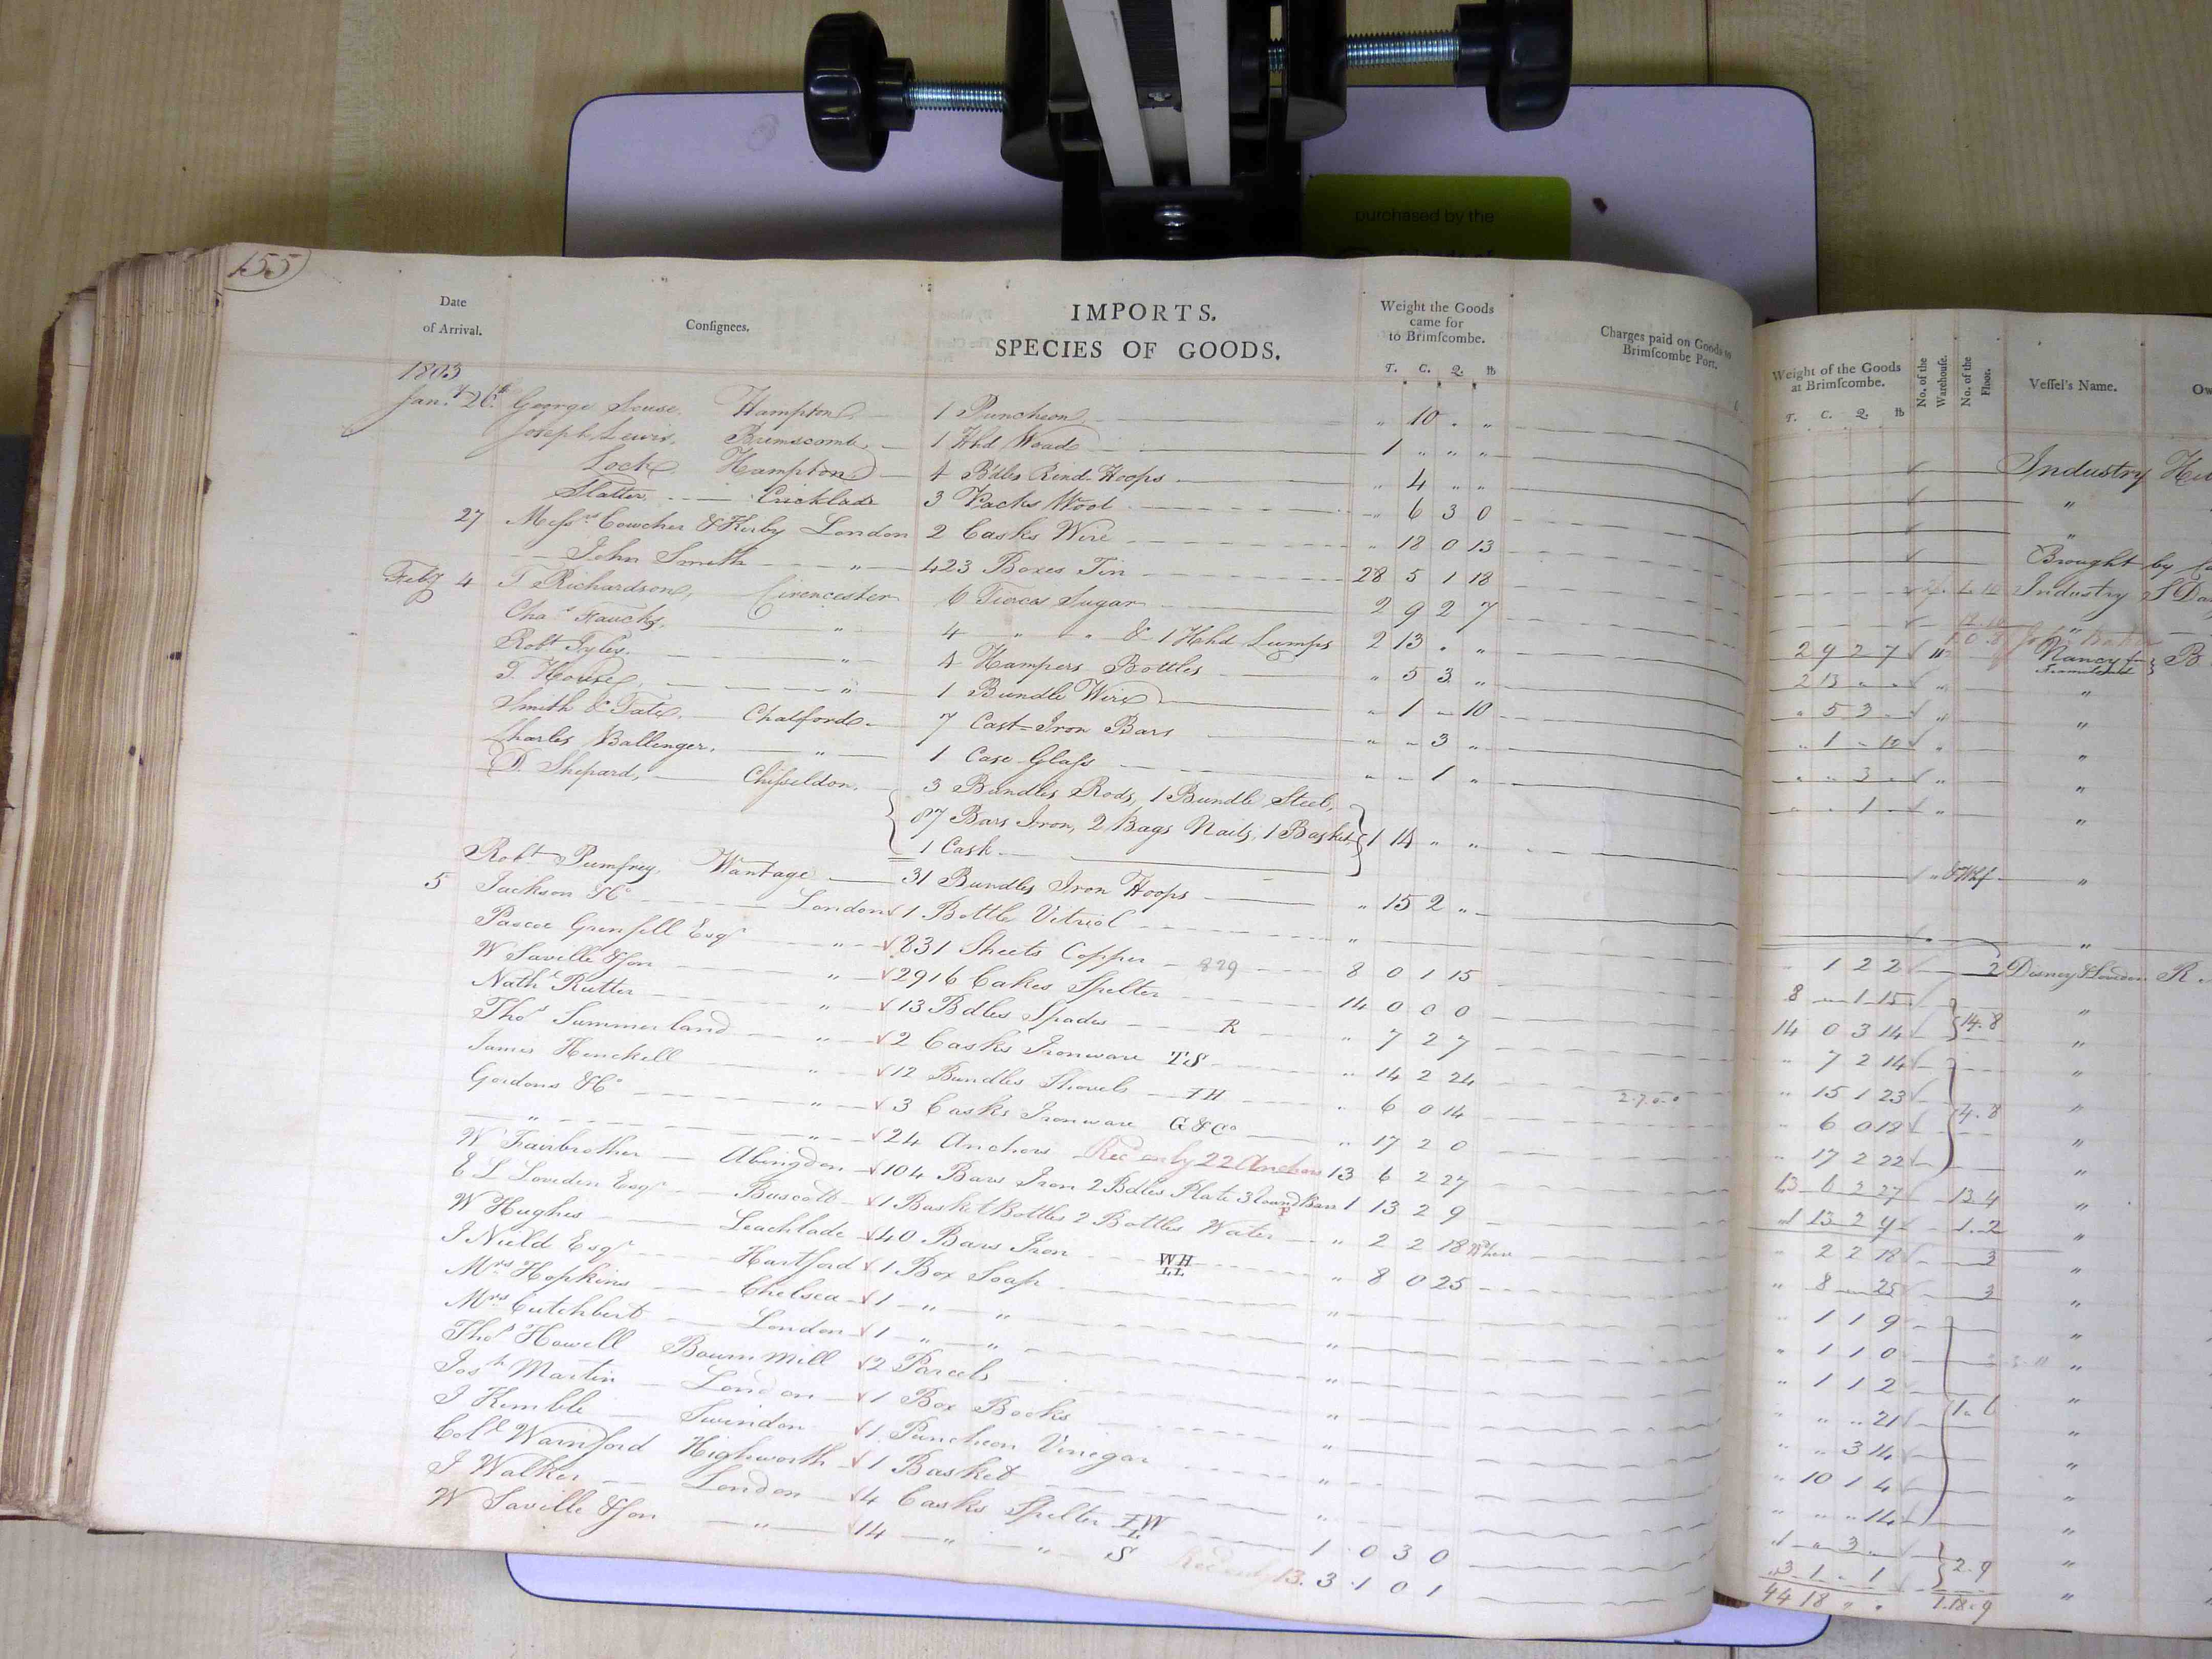 purchased by the
155
Date of Arrival.
Consignees.
IMPORTS.
SPECIES OF GOODS.
Weight the Goods came for to Brimscombe.
T. C. Q. lb
Charges paid on Goods to Brimscombe Port.
1803
Jany 26th George Souse. Hampton 1 Puncheon " 10 " "
Joseph Lewis. Brimscomb 1 Hhd Woad 1 " " "
Lock Hampton 4 Bdls Rind Hoops " 4 " "
Slatter Cricklade 3 Packs Wool " 6 3 0
27 Messrs Cowcher & Kirby London 2 Casks Wire " 18 0 13
John Smith " 423 Boxes Tin 28 5 1 18
Feby 4 T Richardson, Cirencester 6 Tierces Sugar 2 9 2 7
Chas " 4 " " & 1 Hhd Lumps 2 13 " "
Robt Tyler. " 4 Hampers Bottles " 5 3 "
T. House, " 1 Bundle Wire " 1 - 10
Smith & Tate. Chalford 7 Cast Iron Bars " " 3 "
Charles Ballenger. " 1 Case Glass " " 1 "
D. Shepard, Chisseldon. 3 Bundles Rods, 1 Bundle Steel,
87 Bars Iron, 2 Bags Nails, 1 Basket 1 14 " "
1 Cask
Robt Pumfrey, Wantage 31 Bundles Iron Hoops " 15 2 "
5 Jackson & Co London 1 Bottle Vitriol "
Pascoe Grenfell Esqr " 831 Sheets Copper 829 8 0 1 15
W Saville & Son " 2916 Cakes Spelter 14 0 0 0
Nathl Rutter " 13 Bdles Spades R " 7 2 7
Thos Summerland " 2 Casks Ironware TS " 14 2 24
James Henckell " 12 Bundles Shovels IH " 6 0 14
Gordons & Co " 3 Casks Ironware G&Co " 17 2 0
" " 24 Anchors Recd only 22 Anchors 13 6 2 27
W Fairbrother Abingdon 104 Bars Iron 2 Bdles Plate 3 Round Bars 1 13 2 9
E L Loveden Esqr Buscott 1 Basket Bottles 2 Bottles Water " 2 2 18
W Hughes Leachlade 40 Bars Iron WH LL " 8 0 25
J Nield Esqr Hartford 1 Box Soap "
Mrs Hopkins Chelsea 1 " " "
Mrs Cutchbert London 1 " " "
Thos Howell Bourn Mill 2 Parcels "
Josh Martin London 1 Box Books "
J Kemble Swindon 1 Puncheon Vinegar "
Coll Warnford Highworth 1 Basket "
J Walker London 4 Casks Spelter IW L 1 0 3 0
W Saville & Son " 14 " " S Recd only 13. 3 1 0 1
Weight of the Goods at Brimscombe.
T. C. Q. lb
No. of the Warehouse.
No. of the Floor.
Vessel's Name.
Ow
Industry
"
"
Brought by
Industry
2 9 2 7 " Nancy
2 13 " " " "
" 5 3 " " "
" 1 " 10 " "
" " 3 " " "
" " 1 " "
" "
"
" 1 2 2 2 Disney & London R
8 " 1 15 "
14 0 3 14 14.8 "
" 7 2 14 "
" 15 1 23 "
" 6 0 18 4.8 "
" 17 2 22 "
13 6 2 27 13 4 "
1 13 2 9 1.2 "
" 2 2 18 3 "
" 8 " 25 3 "
" 1 1 9 "
" 1 1 0 "
" 1 1 2 "
" " " 21 "
" " 3 14 "
" 10 1 4 "
" " " 14 "
1 " 3 " "
3 1 " 1 2.9 "
44 18 " "